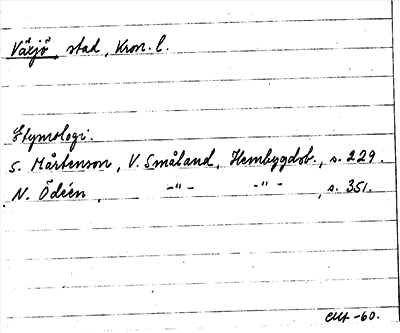 Växjö, stad, Kron. l.
Etymologi:
S. Mårtenson, V. Småland, Hembygdsb., s. 229.
N. Ödéen, -"- -"-, s. 351.
-60.